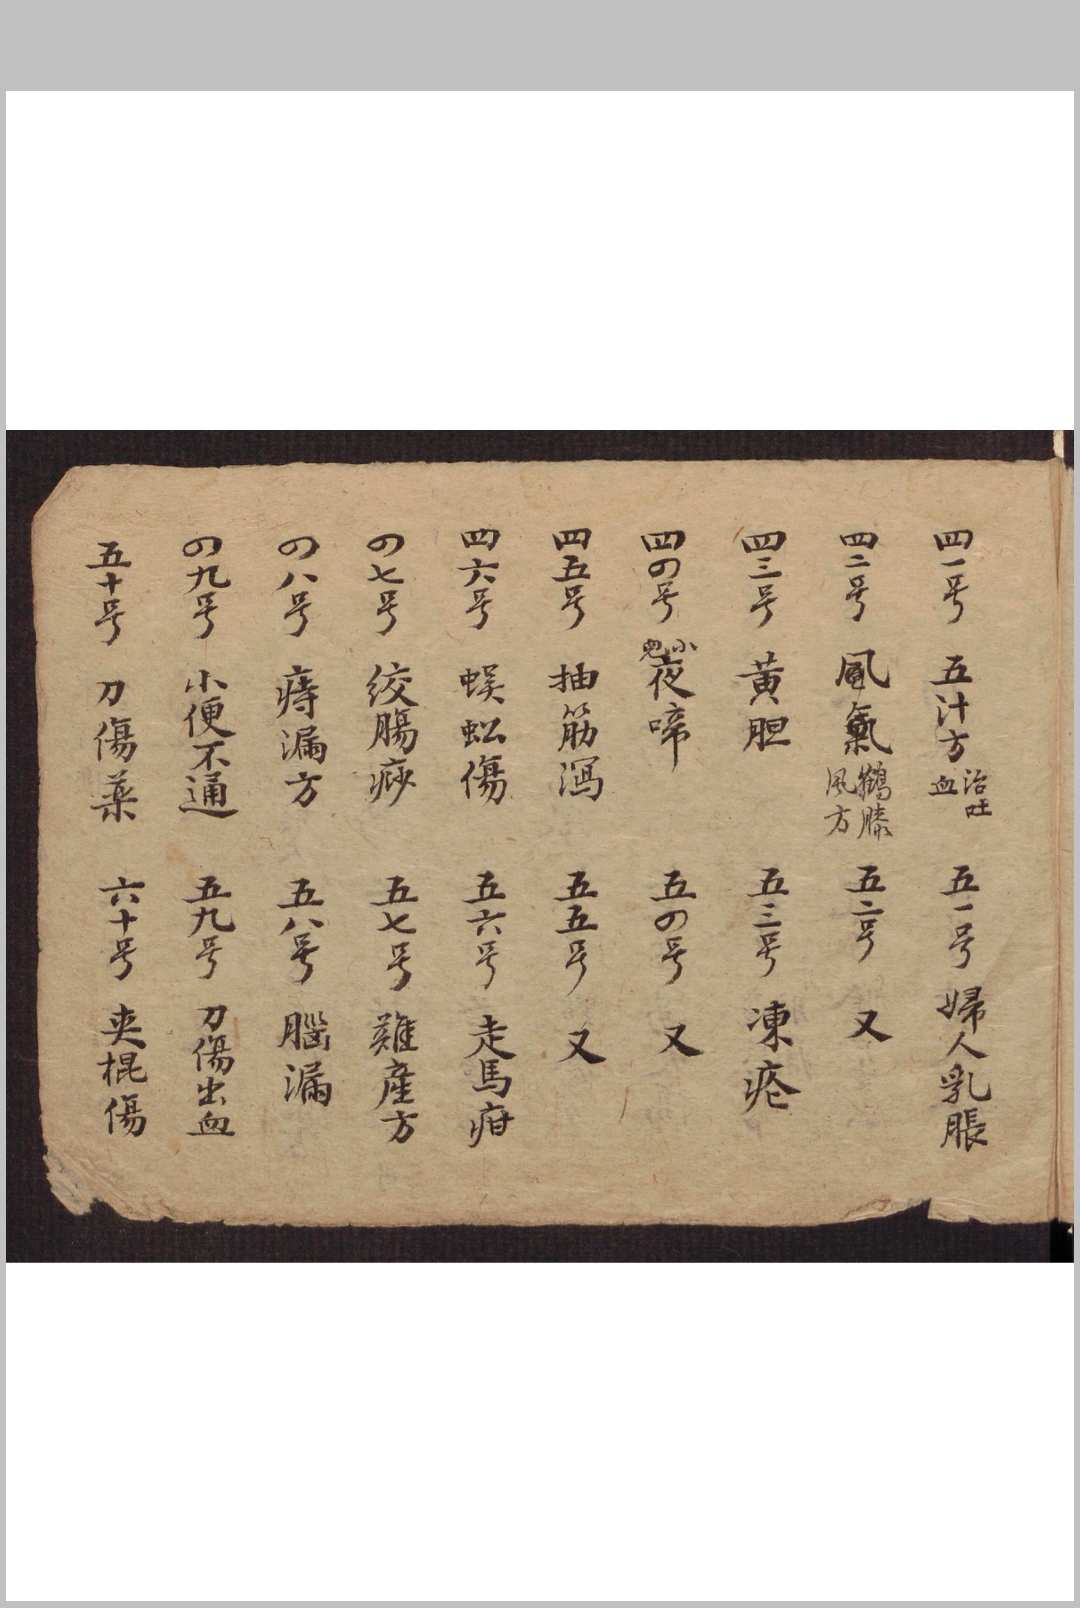 四一号 五汁方 治吐血 五一号 婦人乳脹
四二号 風氣 鶴膝風方 五二号 又
四三号 黃胆 五三号 凍疮
四の号 小児夜啼 五の号 又
四五号 抽筋瀉 五五号 又
四六号 蜈蚣傷 五六号 走馬疳
の七号 絞腸痧 五七号 難産方
の八号 痔漏方 五八号 腦漏
の九号 小便不通 五九号 刀傷出血
五十号 刀傷薬 六十号 夾棍傷